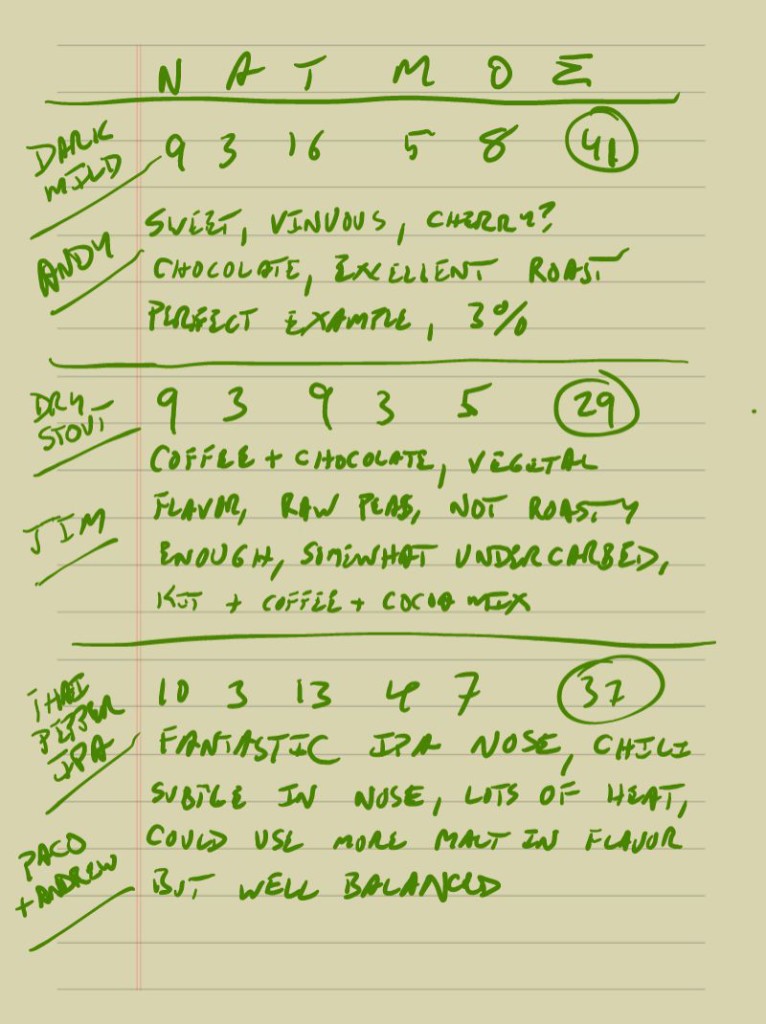 N A T M O Σ
DARK MILD 9 3 16 5 8 41
ANDY
SWEET, VINUOUS, CHERRY?
CHOCOLATE, EXCELLENT ROAST
PERFECT EXAMPLE, 3%
DRY STOUT 9 3 9 3 5 29
JIM
COFFEE + CHOCOLATE, VEGETAL
FLAVOR, RAW PEAS, NOT ROASTY
ENOUGH, SOMEWHAT UNDERCARBED,
KIT + COFFEE + COCOA MIX
THAI PEPPER IPA 10 3 13 4 7 37
PACO + ANDREW
FANTASTIC IPA NOSE, CHILI
SUBTLE IN NOSE, LOTS OF HEAT,
COULD USE MORE MALT IN FLAVOR
BUT WELL BALANCED